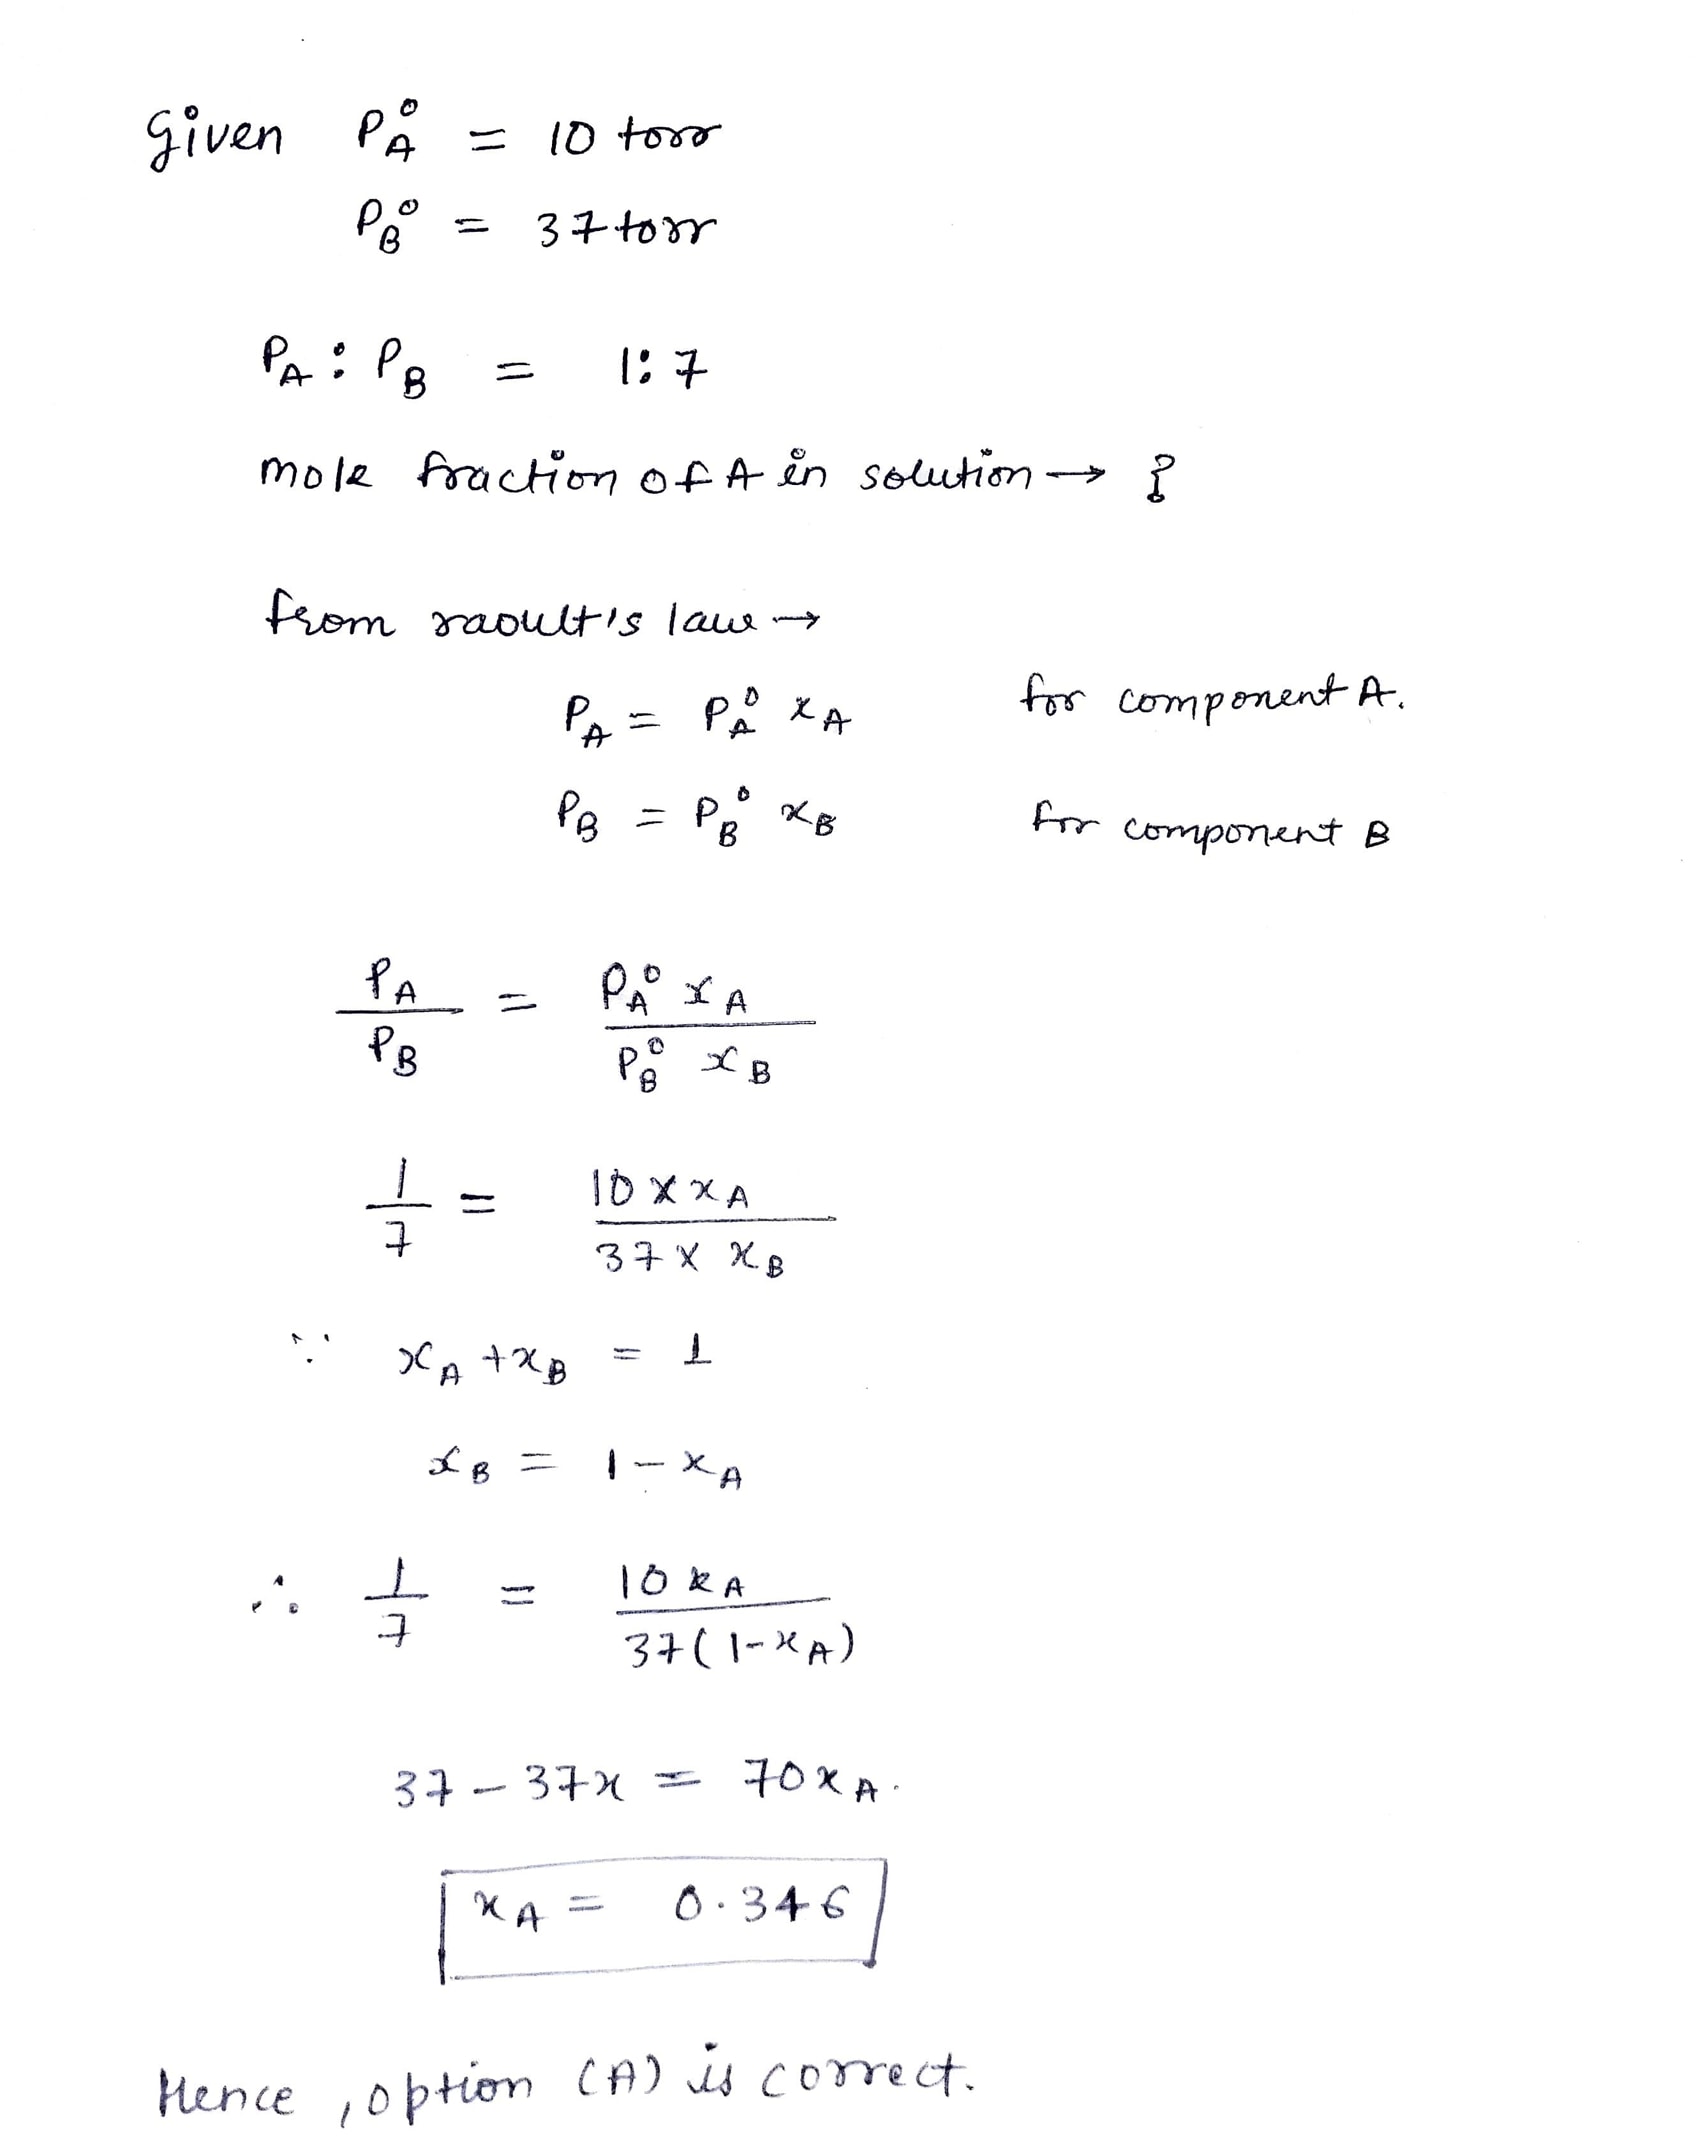 Given P°A = 10 torr
P°B = 37 torr
PA : PB = 1:7
mole fraction of A in solution → ?
from raoult's law →
PA = P°A xA for component A.
PB = P°B xB for component B
PA/PB = P°A xA / P°B xB
1/7 = 10 × xA / 37 × xB
∵ xA + xB = 1
xB = 1 - xA
∴ 1/7 = 10 xA / 37(1-xA)
37 - 37x = 70xA.
xA = 0.346
Hence, option (A) is correct.